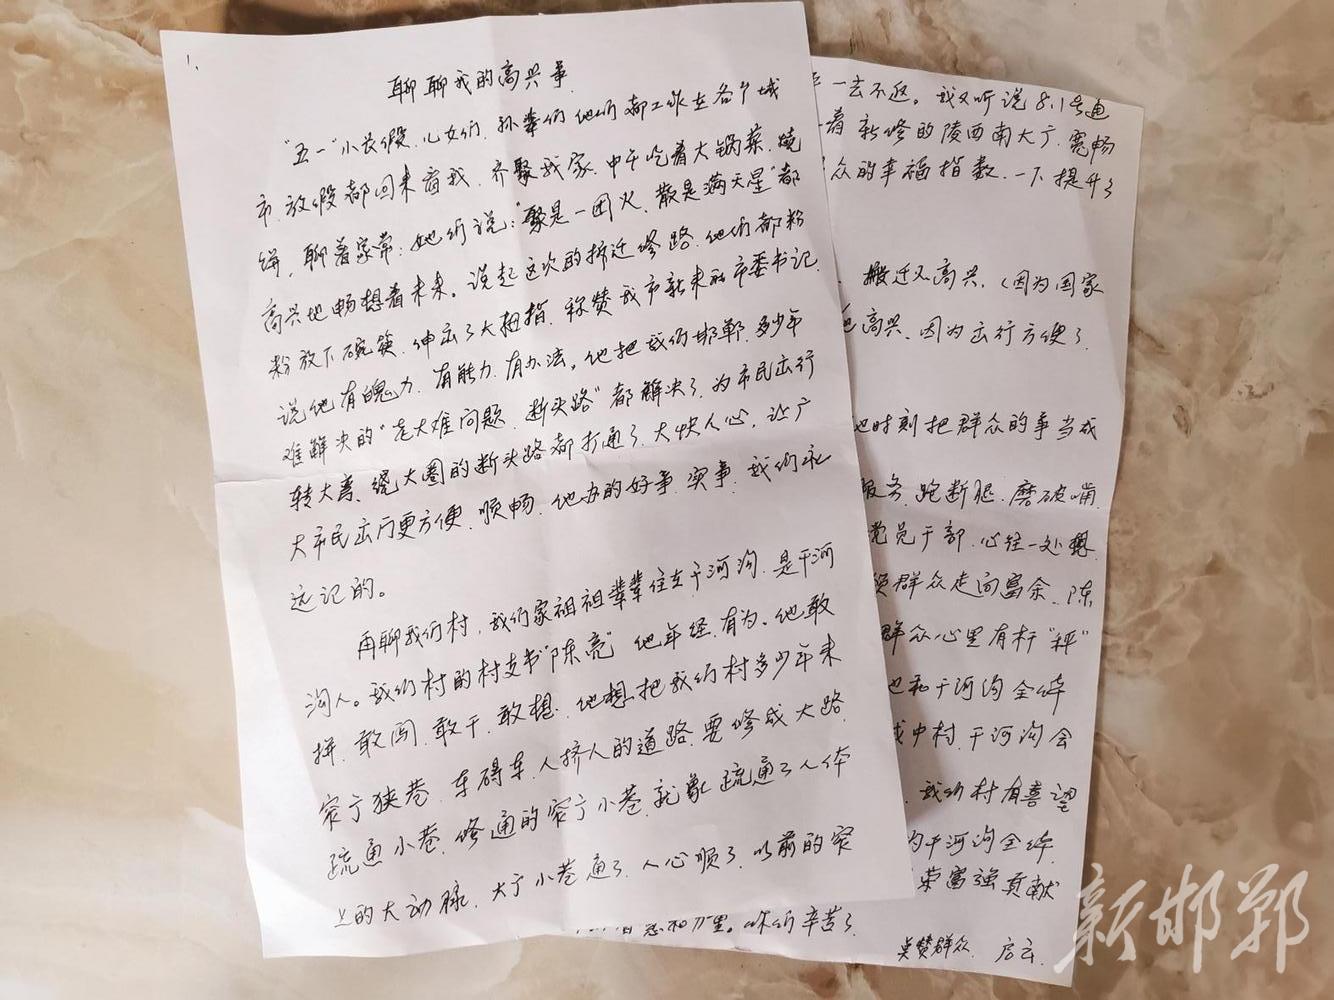 1、
聊聊我的高兴事
"五一"小长假,儿女们、孙辈们他们都工作在各个城
市,放假都回来看我,齐聚我家,中午吃着大锅菜、烧
饼,聊着家常,她们说:"聚是一团火,散是满天星"都
高兴地畅想着未来。说起这次的拆迁修路,他们都粉
粉放下碗筷,伸出了大拇指,称赞我市新来的市委书记,
说他有魄力、有能力、有办法。他把我们邯郸,多少年
难解决的"老大难问题,断头路"都解决了,为市民出行
转大弯、绕大圈的断头路都打通了,大快人心,让广
大市民出行更方便、顺畅,他办的好事、实事,我们永
远记的。
再聊我们村,我们家祖祖辈辈住在干河沟,是干河
沟人。我们村的村支书"陈亮"他年经、有为。他敢
拼、敢闯、敢干、敢想,他想把我们村多少年来
窄宁狭巷,车碍车、人挤人的道路,要修成大路,
疏通小巷,修通的窄宁小巷,就象疏通了人体
上的大动脉,大宁小巷通了,人心顺了,以前的窄
一去不返。我又听说8.1号通
着新修的陵西南大宁,宽畅
众的幸福指数,一下提升了
搬迁又高兴,(因为国家
高兴,因为出行方便了
时刻把群众的事当成
服务,跑断腿,磨破嘴,
党员干部,心往一处想,
领群众走向富余,陈
群众心里有杆"秤"
也和干河沟全体
城中村,干河沟会
,我们村有喜望
干河沟全体,
荣富强贡献
你们辛苦了
点赞群众
新邯郸